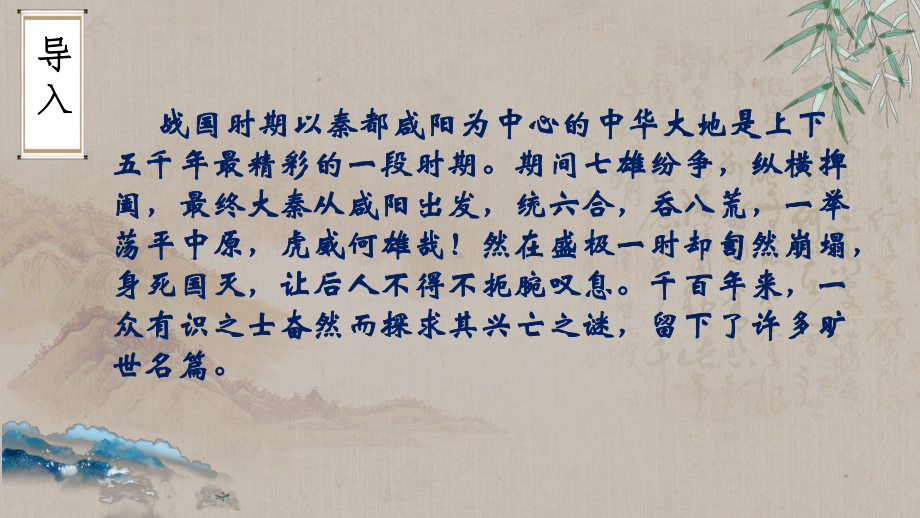 导入
战国时期以秦都咸阳为中心的中华大地是上下
五千年最精彩的一段时期。期间七雄纷争，纵横捭
阖，最终大秦从咸阳出发，统六合，吞八荒，一举
荡平中原，虎威何雄哉！然在盛极一时却訇然崩塌，
身死国灭，让后人不得不扼腕叹息。千百年来，一
众有识之士奋然而探求其兴亡之谜，留下了许多旷
世名篇。